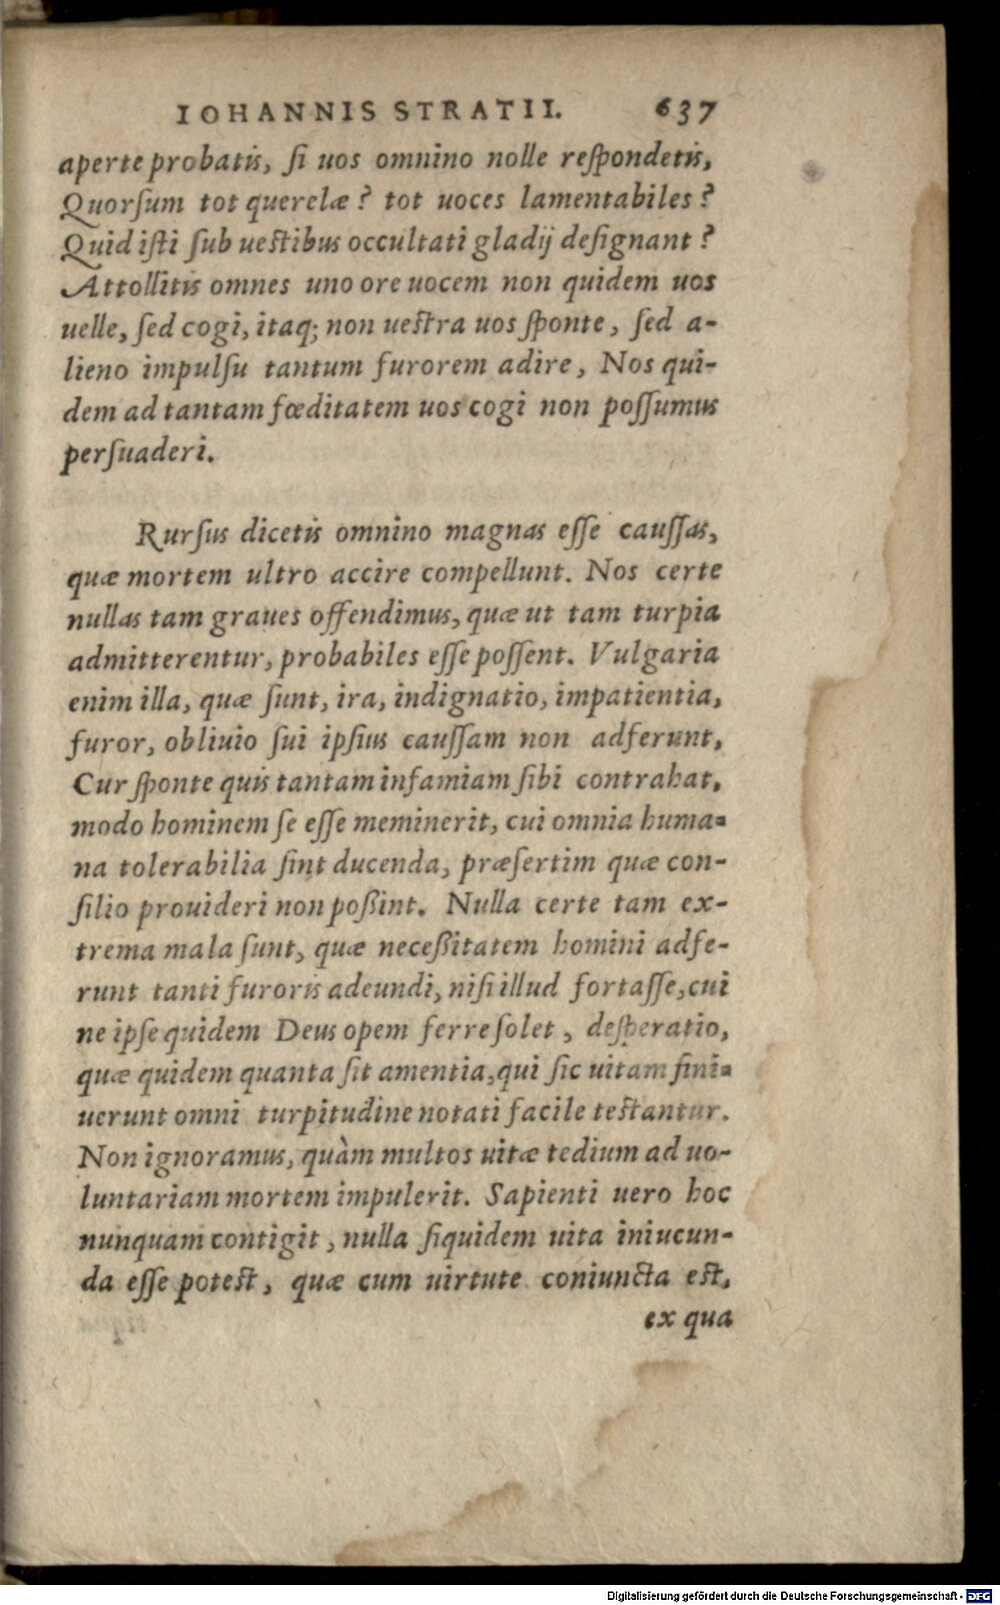 IOHANNIS STRATII. 637
aperte probatis, ſi uos omnino nolle reſpondetis,
Quorſum tot querelæ? tot uoces lamentabiles?
Quid iſti ſub ueſtibus occultati gladij deſignant?
Attollitis omnes uno ore uocem non quidem uos
uelle, ſed cogi, itaq; non ueſtra uos ſponte, ſed a-
lieno impulſu tantum furorem adire, Nos qui-
dem ad tantam fœditatem uos cogi non poſſumus
perſuaderi.
Rurſus dicetis omnino magnas eſſe cauſſas,
quæ mortem ultro accire compellunt. Nos certe
nullas tam graues offendimus, quæ ut tam turpia
admitterentur, probabiles eſſe poſſent. Vulgaria
enim illa, quæ ſunt, ira, indignatio, impatientia,
furor, obliuio ſui ipſius cauſſam non adferunt,
Cur ſponte quis tantam infamiam ſibi contrahat,
modo hominem ſe eſſe meminerit, cui omnia huma-
na tolerabilia ſint ducenda, præſertim quæ con-
ſilio prouideri non poßint. Nulla certe tam ex-
trema mala ſunt, quæ neceßitatem homini adfe-
runt tanti furoris adeundi, niſi illud fortaſſe, cui
ne ipſe quidem Deus opem ferre ſolet, deſperatio,
quæ quidem quanta ſit amentia, qui ſic uitam fini-
uerunt omni turpitudine notati facile teſtantur.
Non ignoramus, quàm multos uitæ tedium ad uo-
luntariam mortem impulerit. Sapienti uero hoc
nunquam contigit, nulla ſiquidem uita iniucun-
da eſſe poteſt, quæ cum uirtute coniuncta eſt,
ex qua
Digitalisierung gefördert durch die Deutsche Forschungsgemeinschaft - DFG